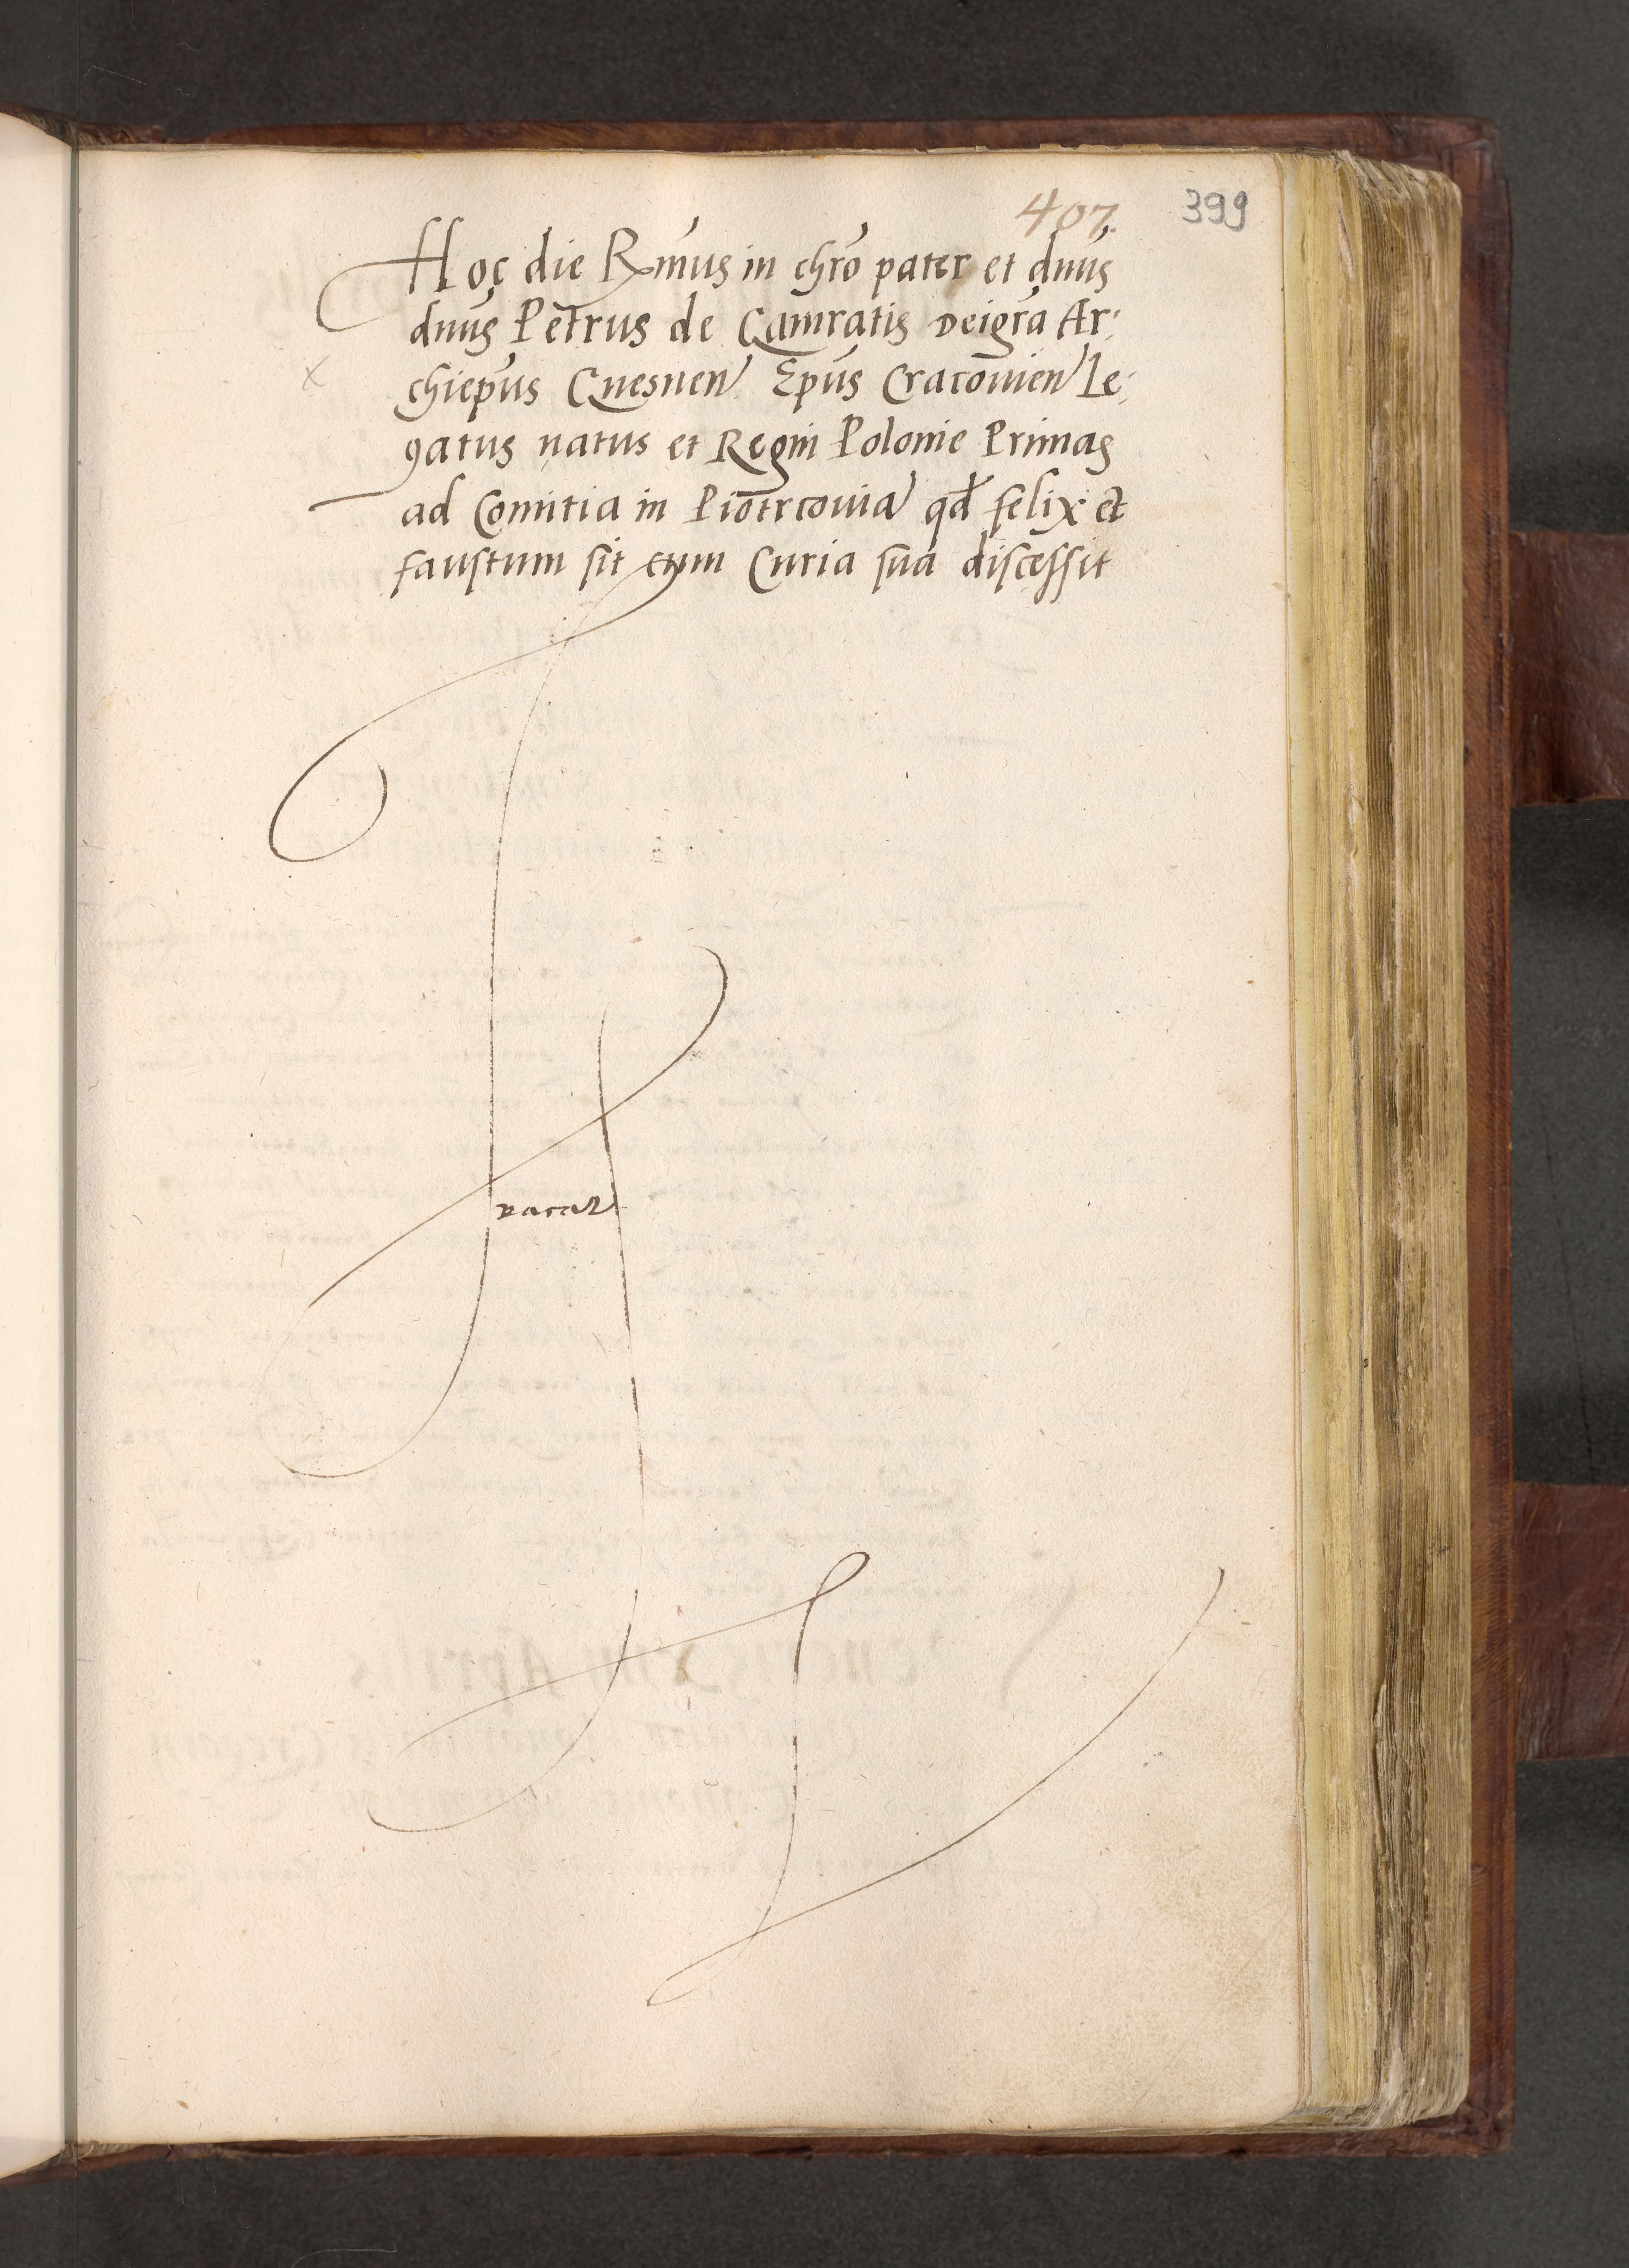 407. 399
Hoc die Rmus in chro pater et dnus
dnus Petrus de Gamratis Dei gra Ar:
chiepus Gnesnen Epus Cracovien Le:
gatus natus et Regni Polonie Primas
ad Comitia in Piotrcovia qd felix et
faustum sit cum Curia sua discessit
vacat